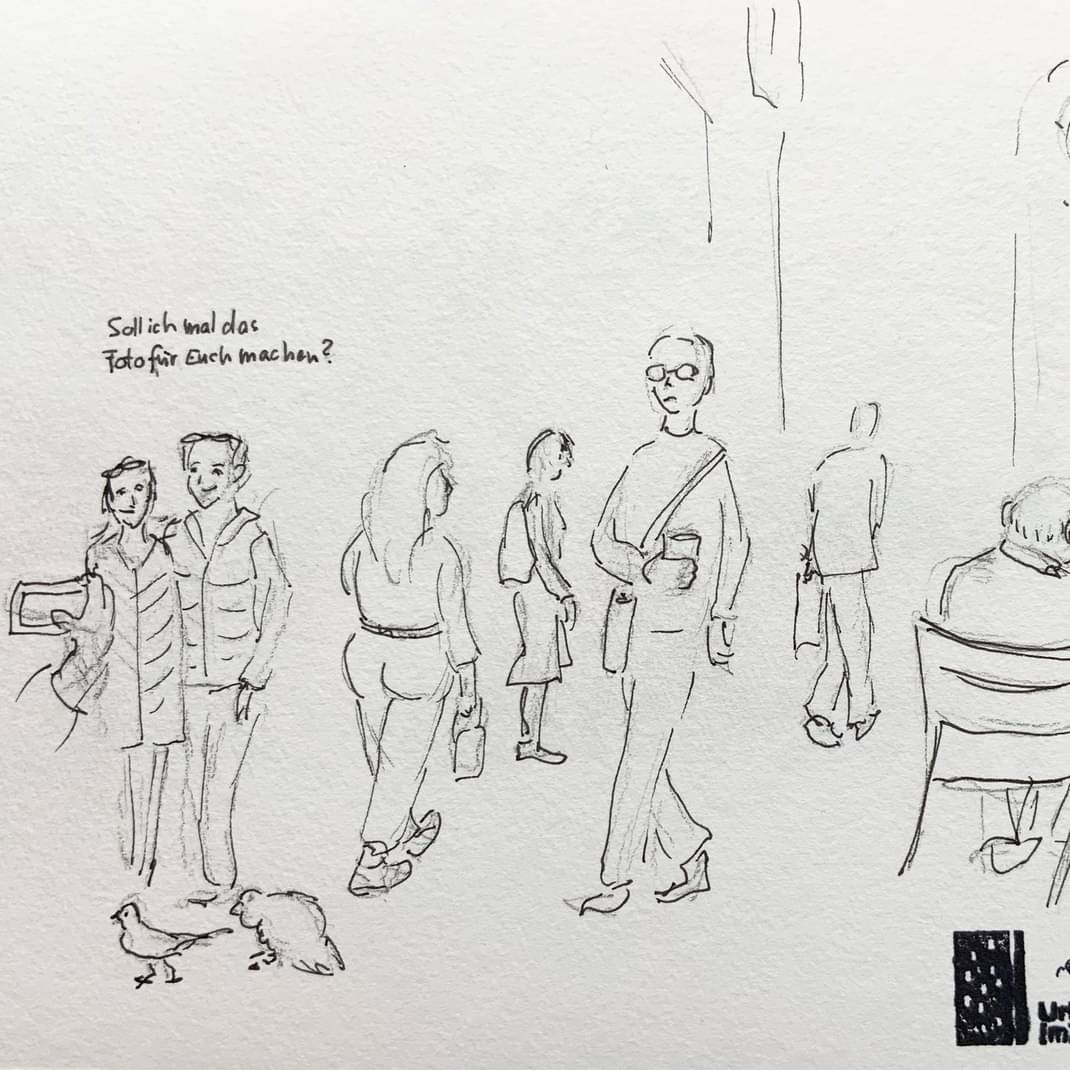 Soll ich mal das
Foto für Euch machen?